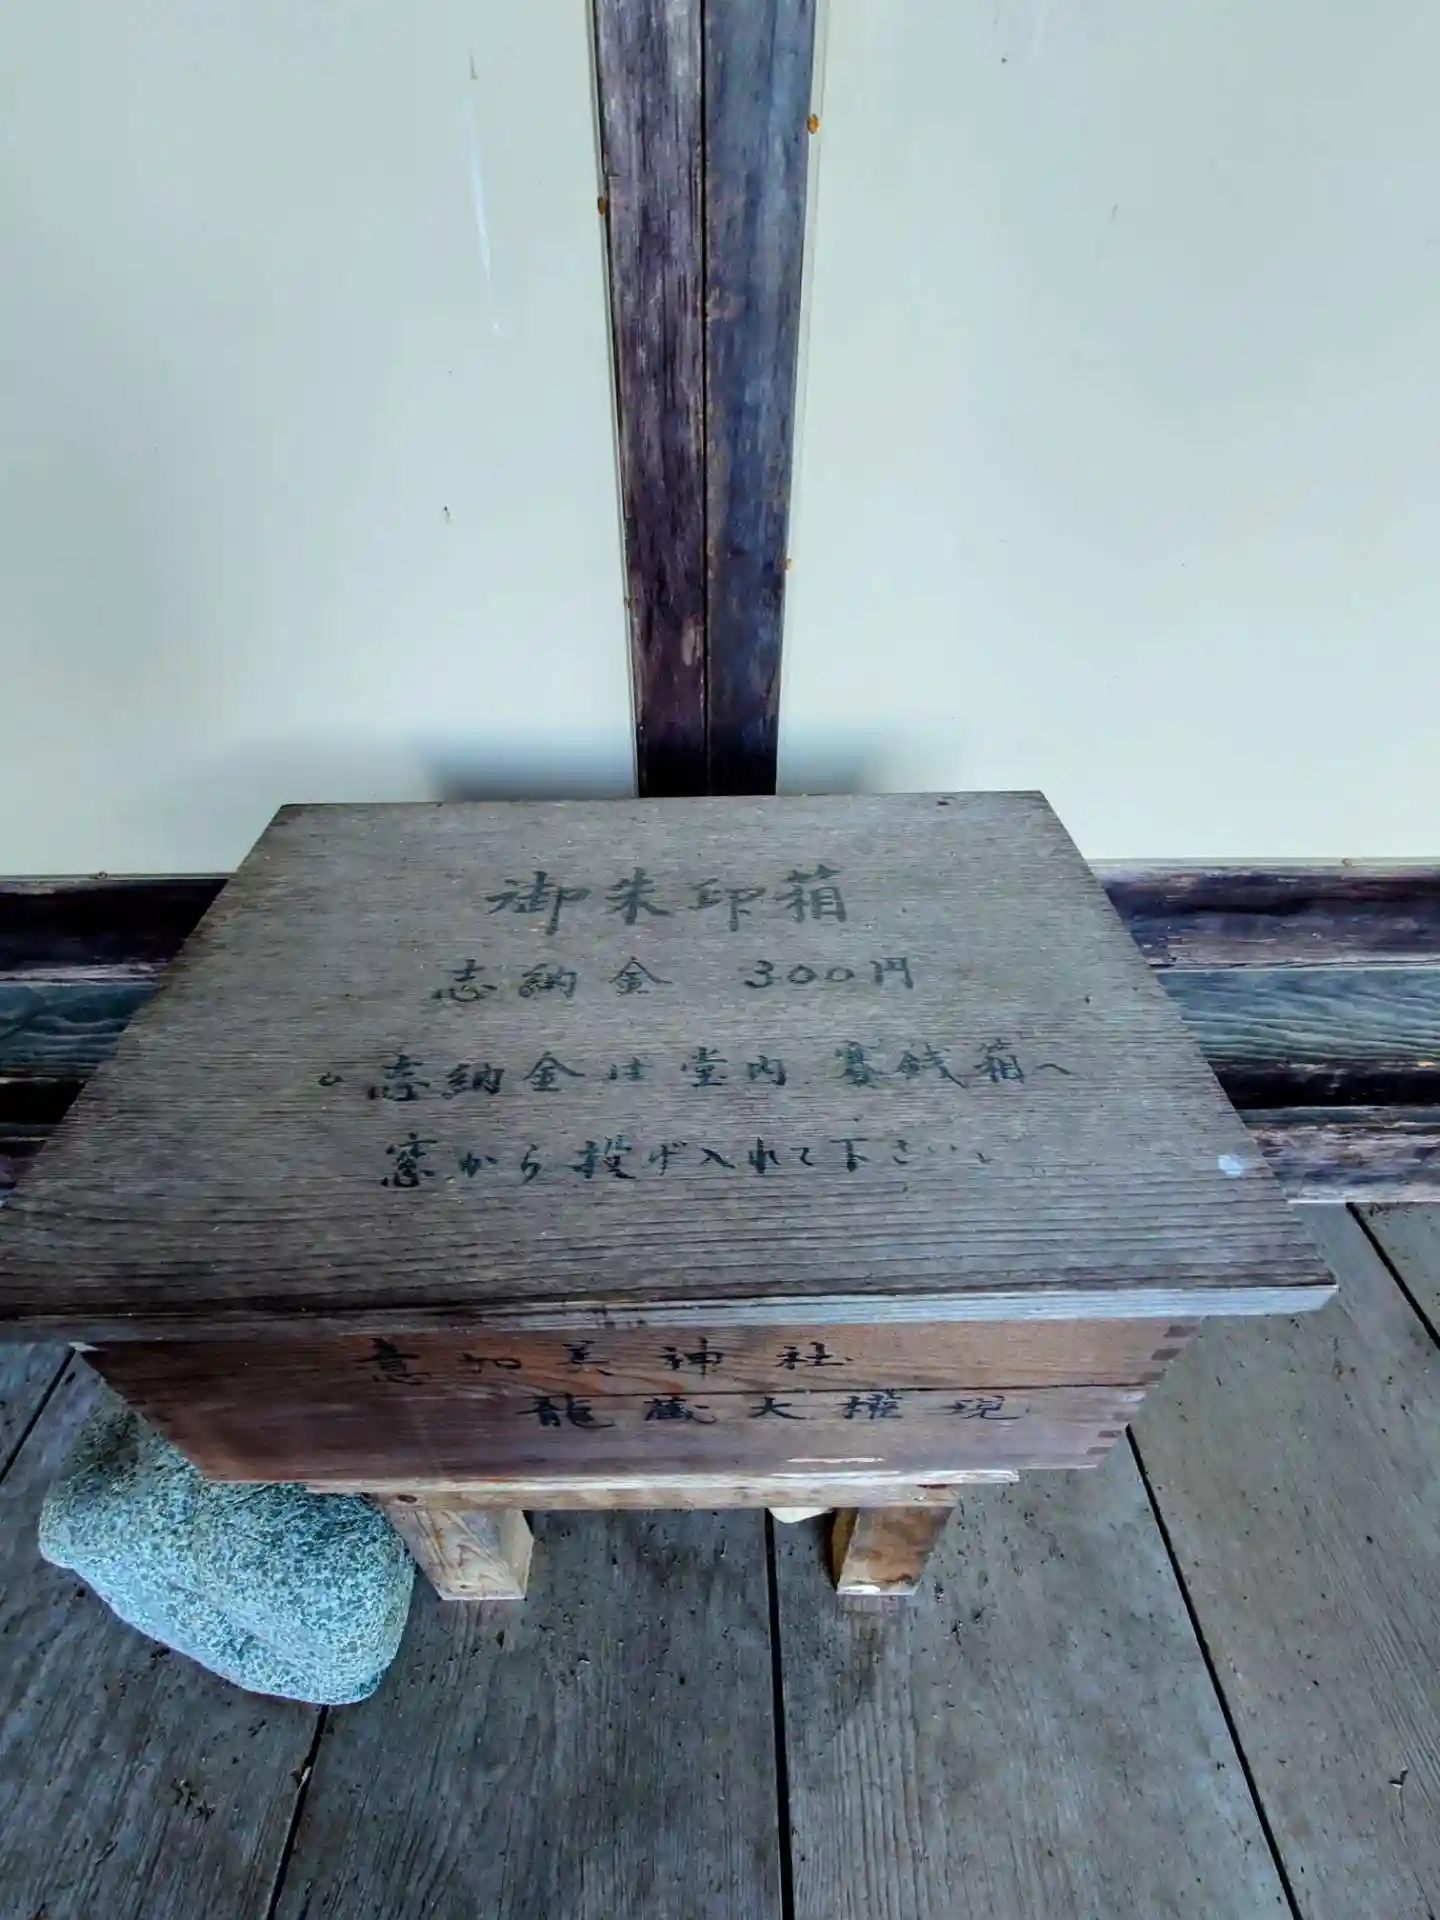 御朱印箱
志納金 300円
志納金は堂内賽銭箱へ
窓から投げ入れて下さい、
意加美神社
龍蔵大権現